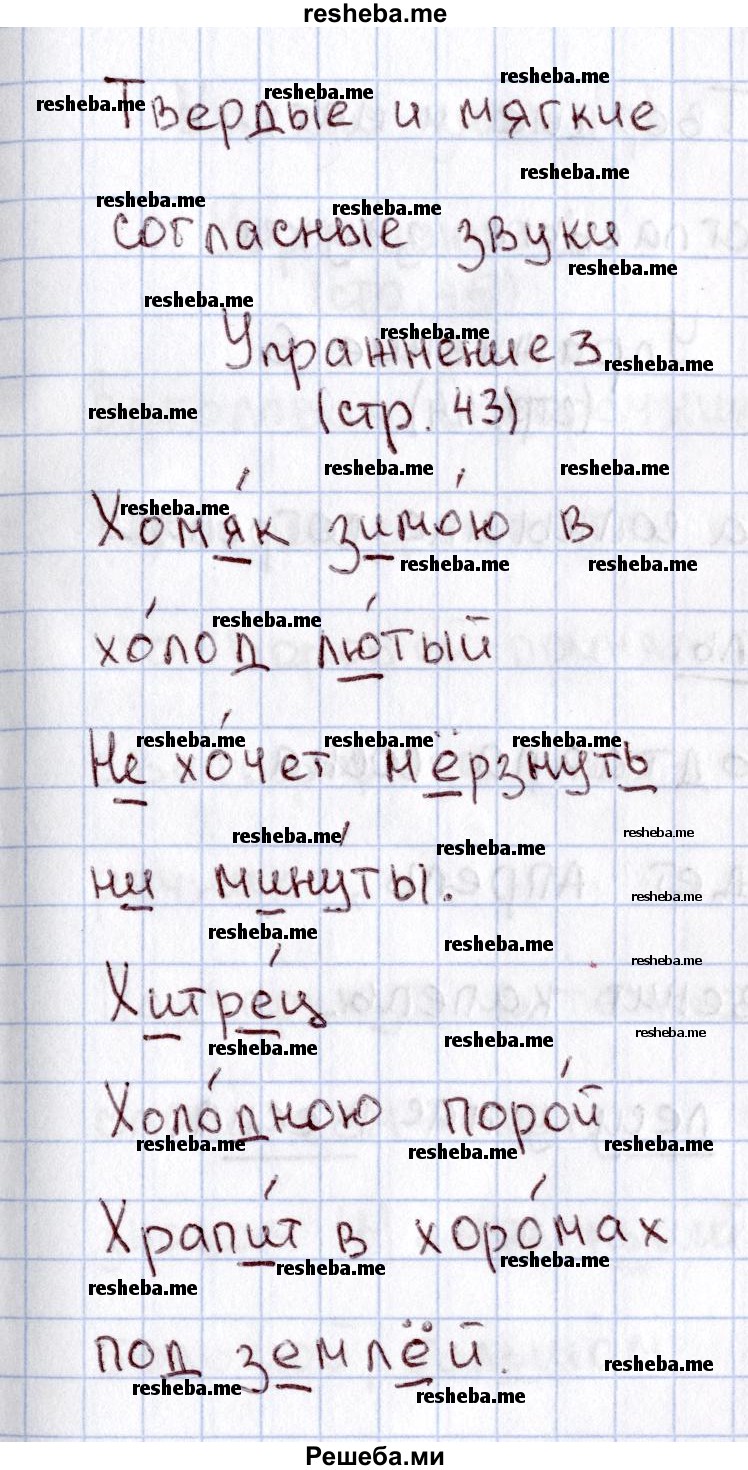 resheba.me
Твердые и мягкие
согласные звуки
Упражнение 3
(стр. 43)
Хомя́к зимо́ю в
хо́лод лю́тый
Не хо́чет мёрзнуть
ни мину́ты.
Хитре́ц
Холо́дною поро́й
Храпи́т в хоро́мах
под землёй.
Решеба.ми